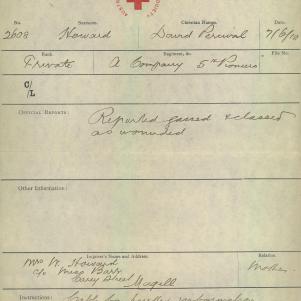 No. Surname. Christian Names. Date.
2608 Howard David Percival 7/6/18
Rank. Regiment, &c. File No.
Private A Company 5th Pioneers
C/L
OFFICIAL REPORTS:
Reported gassed & classed
as wounded
Other Information:
Inquirer's Name and Address. Relation.
Mrs W. Howard
c/o Miss Barr Mother
Street
Magill
Instructions: